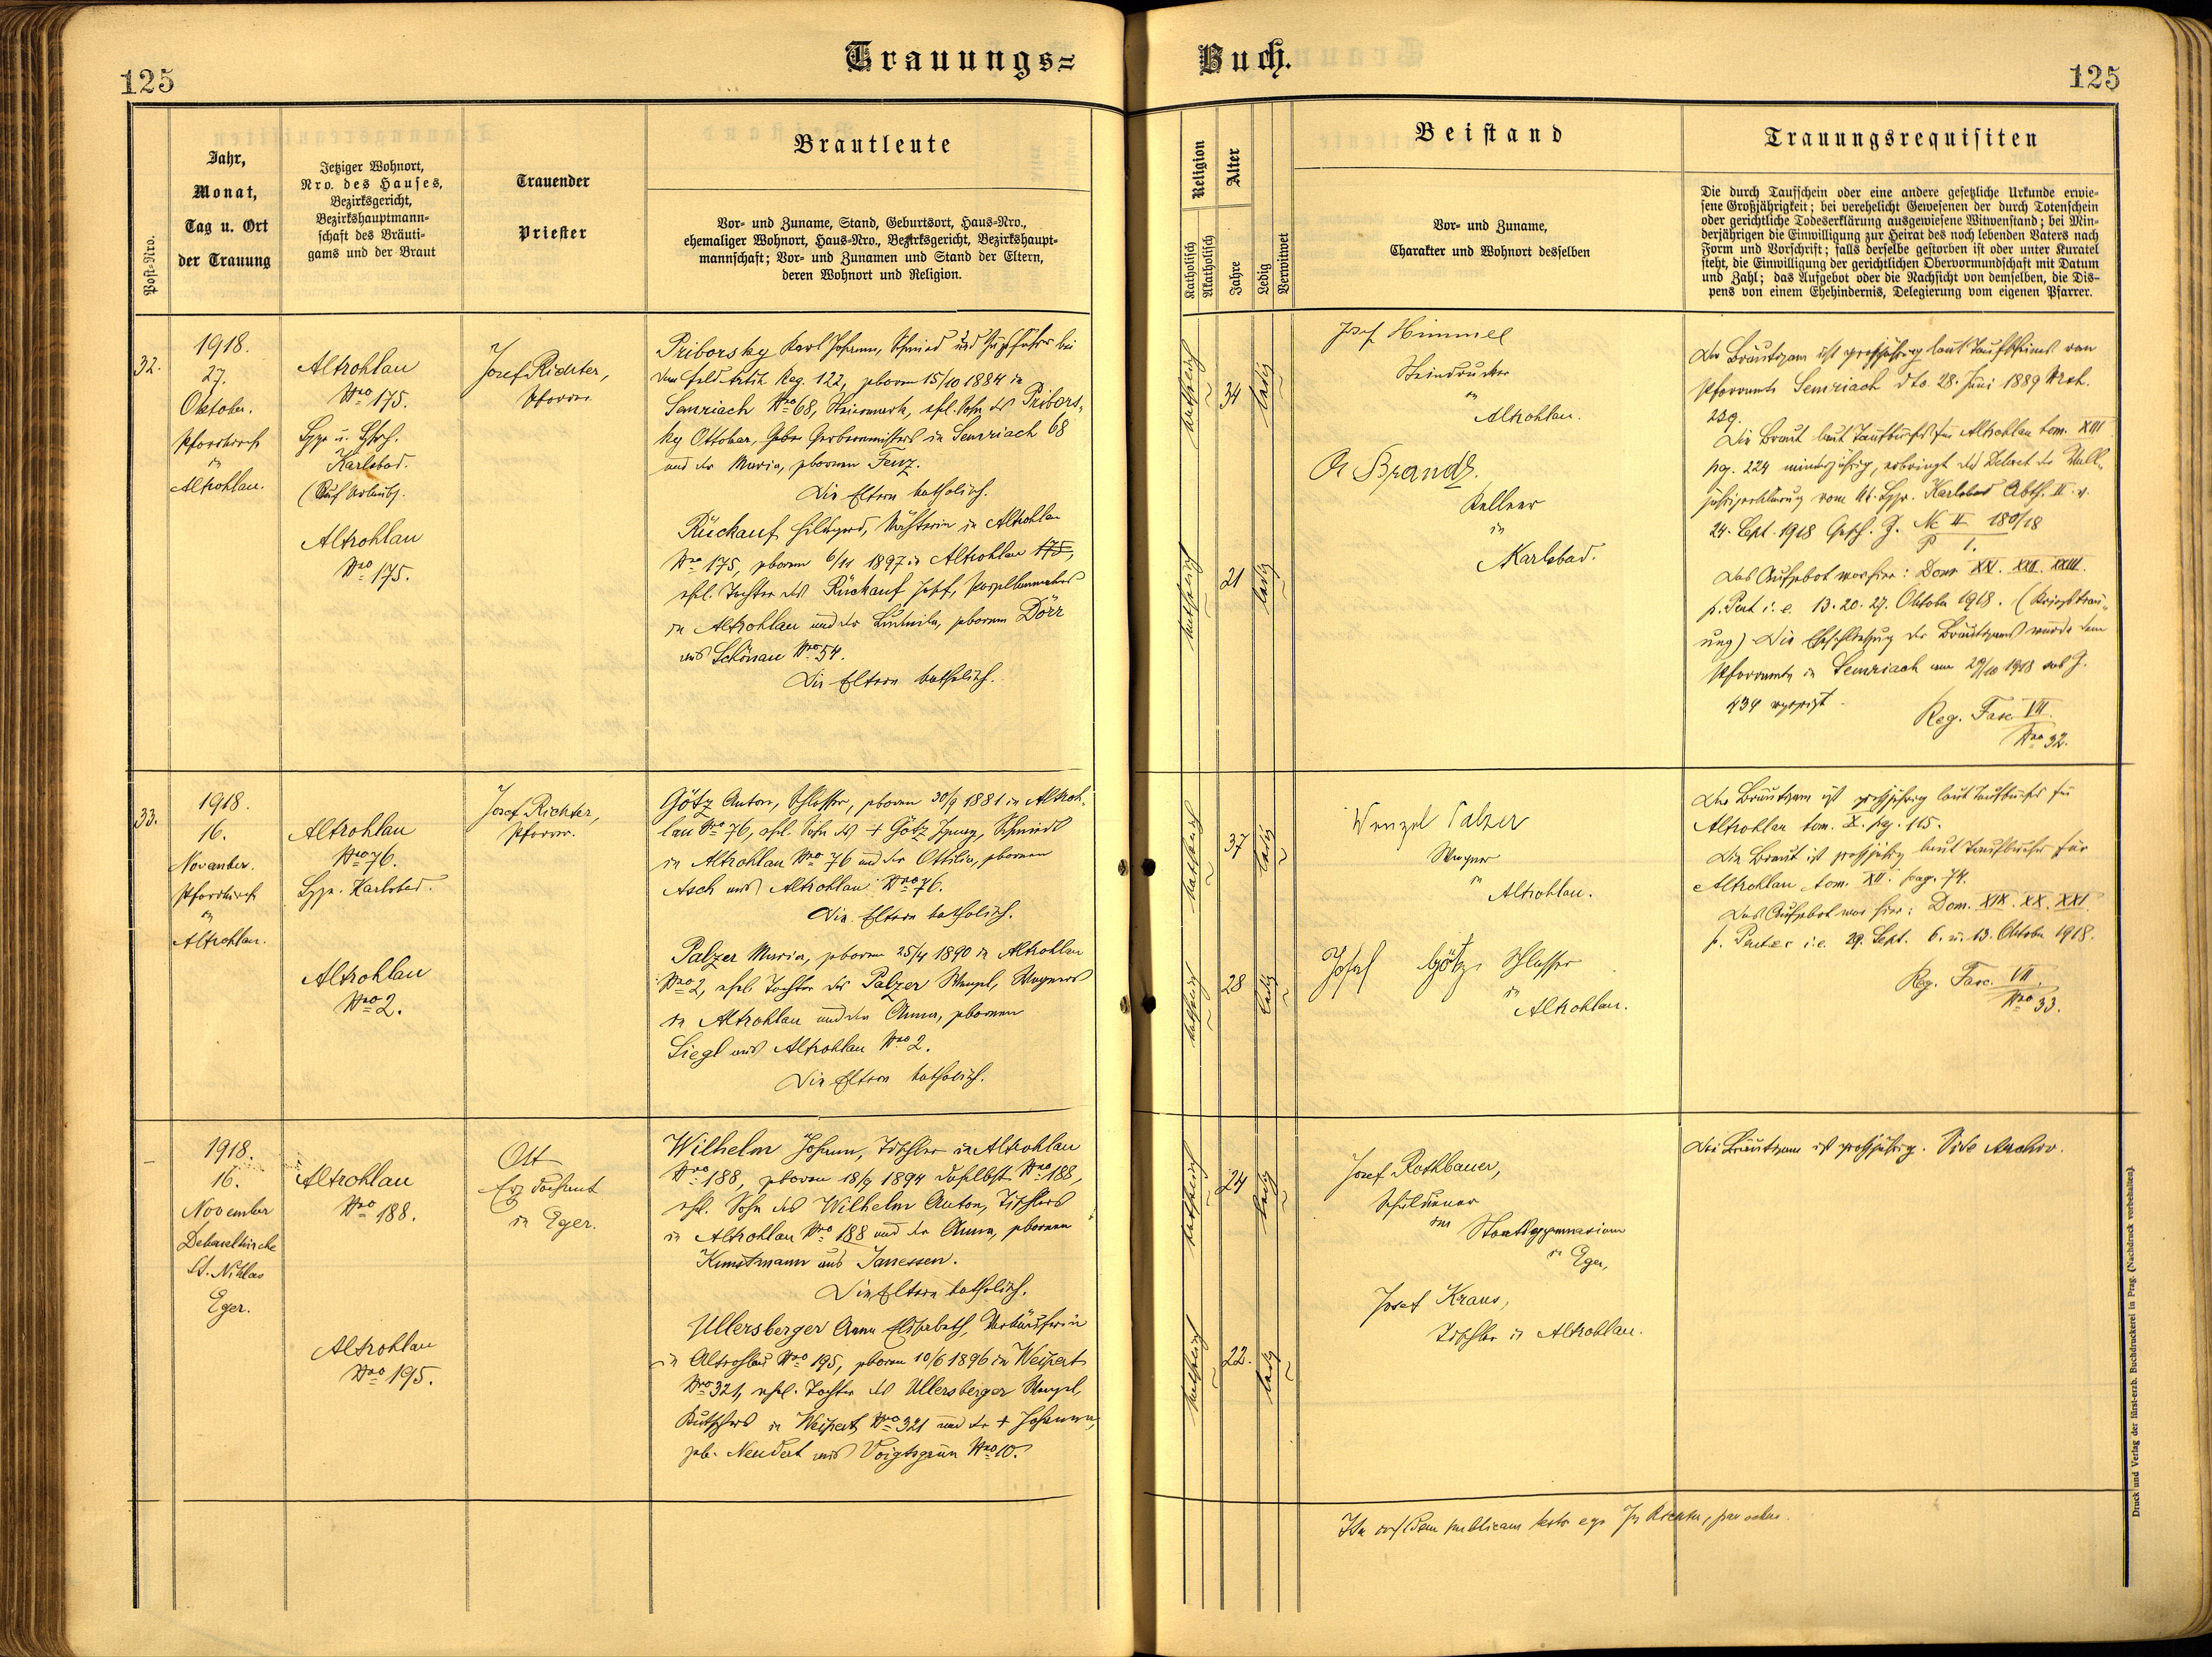 125
Trauungs=
Buch.
125
Post-Nro.
Jahr,
Monat,
Tag u. Ort
der Trauung
Jetziger Wohnort,
Nro. des Hauses,
Bezirksgericht,
Bezirkshauptmann-
schaft des Bräuti-
gams und der Braut
Trauender
Priester
Brautleute
Vor- und Zuname, Stand, Geburtsort, Haus-Nro.,
ehemaliger Wohnort, Haus-Nro., Bezirksgericht, Bezirkshaupt-
mannschaft; Vor- und Zunamen und Stand der Eltern,
deren Wohnort und Religion.
Religion
Katholisch
Akatholisch
Alter
Jahre
Ledig
Verwitwet
Beistand
Vor- und Zuname,
Charakter und Wohnort desselben
Trauungsrequisiten
Die durch Taufschein oder eine andere gesetzliche Urkunde erwie-
sene Großjährigkeit; bei verehelicht Gewesenen der durch Totenschein
oder gerichtliche Todeserklärung ausgewiesene Witwenstand; bei Min-
derjährigen die Einwilligung zur Heirat des noch lebenden Vaters nach
Form und Vorschrift; falls derselbe gestorben ist oder unter Kuratel
steht, die Einwilligung der gerichtlichen Obervormundschaft mit Datum
und Zahl; das Aufgebot oder die Nachsicht von demselben, die Dis-
pens von einem Ehehindernis, Delegierung vom eigenen Pfarrer.
32.
1918.
27.
Oktober.
Pfarrkirche
in
Altrohlau.
Altrohlau
Nro 175.
Karlsbad.
(Auf Urlaub).
Altrohlau
Nro 175.
Josef Richter,
Pfarrer.
Priborsky Karl Johann, Schmied und Zugsführer bei
dem Feld Artil. Reg. 122, geboren 15/10 1884 in
Semriach Nro 68, Steiermark, ehl. Sohn des Pribors-
ky Ottokar, in Semriach 68
und der Maria, geborenen Fenz.
Die Eltern katholisch.
Rückauf Hildegard, in Altrohlau
Nro 175, geboren 6/11 1897 in Altrohlau 175,
ehl. Tochter des Rückauf Josef, Porzellanmalers
in Altrohlau und der Ludmila, geborenen Dörr
aus Schönau Nro 54.
Die Eltern katholisch.
katholisch
34
ledig
katholisch
21
ledig
Josef Himmel
Steindrucker
in
Altrohlau.
Brandl.
Kellner
in
Karlsbad.
Der Bräutigam ist großjährig laut Taufscheines von
Pfarramte Semriach dto. 28. Juni 1889
239.
Die Braut laut Taufbuches für Altrohlau tom. XIII
pag. 224 minderjährig, erbringt das Dekret der Voll-
jährigerklärung vom Karlsbad Abth. II v.
24. Sept. 1918 Gesch. Z. Nc II 180/18
P 1.
Das Aufgebot war hier: Dom XXI. XXII. XXIII.
p. Pent i. e. 13. 20. 27. Oktober 1918. (Kriegstrau-
ung) Die Eheschließung des Bräutigams wurde dem
Pfarramte in Semriach am 29/10 1918 sub Z.
434 angezeigt.
Reg. Fasc VII.
Nro 32.
33.
1918.
16.
November.
Pfarrkirche
in
Altrohlau.
Altrohlau
Nro 76.
Karlsbad.
Altrohlau
Nro 2.
Josef Richter,
Pfarrer.
Götz Anton, Schlosser, geboren 30/9 1881 in Altroh-
lau Nro 76, ehl. Sohn des + Götz Ignaz, Schmieds
in Altrohlau Nro 76 und der Ottilia, geborenen
Asch aus Altrohlau Nro 76.
Die Eltern katholisch.
Palzer Maria, geboren 25/4 1890 in Altrohlau
Nro 2, ehel. Tochter des Palzer Wenzel, Wagners
in Altrohlau und der Anna, geborenen
Siegl aus Altrohlau Nro 2.
Die Eltern katholisch.
katholisch
37
ledig
katholisch
28
ledig
Wenzel Palzer
Wagner
in
Altrohlau.
Josef Götz Schlosser
in
Altrohlau.
Der Bräutigam ist großjährig laut Taufbuches für
Altrohlau tom. X. pag. 115.
Die Braut ist großjährig laut Taufbuches für
Altrohlau tom. XII. pag. 74.
Das Aufgebot war hier: Dom. XIX. XX. XXI.
p. Pentec i. e. 29. Sept. 6. u. 13. Oktober 1918.
Reg. Fasc. VII.
Nro 33.
1918.
16.
November
Dekanalkirche
St. Niklas
Eger.
Altrohlau
Nro 188.
Altrohlau
Nro 195.
Ott
Erzdechant
in Eger.
Wilhelm Johann, Tischler in Altrohlau
Nro 188, geboren 18/7 1894 daselbst Nro 188,
ehl. Sohn des Wilhelm Anton, Tischlers
in Altrohlau Nro 188 und der Anna, geborenen
Kunstmann aus Janessen.
Die Eltern katholisch.
Ullersberger Anna Elisabeth, Verkäuferin
in Altrohlau Nro 195, geboren 10/6 1896 in Weipert
Nro 321, ehel. Tochter des Ullersberger Wenzel,
Kutschers in Weipert Nro 321 und der + Johanna,
geb. Neudert aus Voigtsgrün Nro 10.
katholisch
24
ledig
katholisch
22.
ledig
Josef Rothbauer,
Schuldiener
am
Staatsgymnasium
in Eger,
Josef Kraus,
Tischler in Altrohlau.
Der Bräutigam ist großjährig. Vide Archiv.
Druck und Verlag der fürst-erzb. Buchdruckerei in Prag. (Nachdruck vorbehalten)